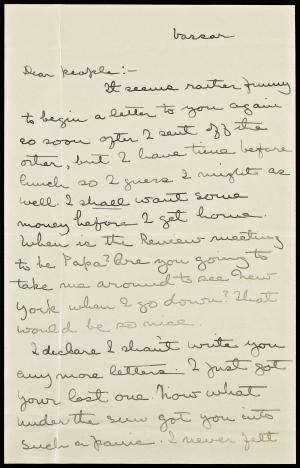 Vassar
Dear people:-
It seems rather funny
to begin a letter to you again
so soon after I sent off the
other, but I have time before
lunch so I guess I might as
well. I shall want some
money before I get home.
When is the Review meeting
to be Papa? Are you going to
take me around to see New
York when I go down? That
would be so nice.
I declare I shan't write you
any more letters. I just got
your last one. Now what
under the sun got you into
such a panic. I never felt